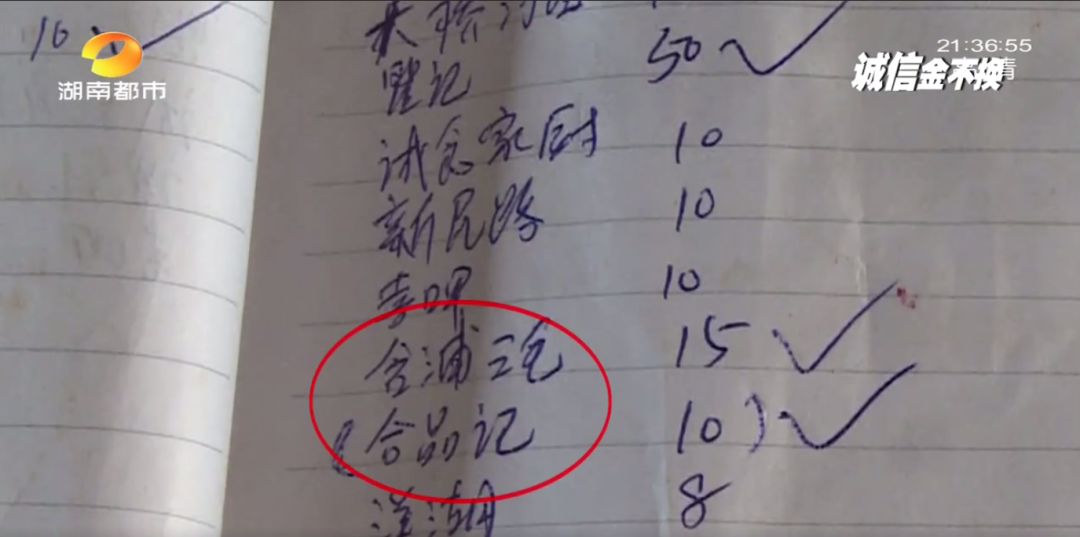 16
湖南都市
21:36:55
诚信金不换
50
记
诚念家厨 10
新民路 10
李 10
含浦三毛 15
(合品记 10)
洋湖 8